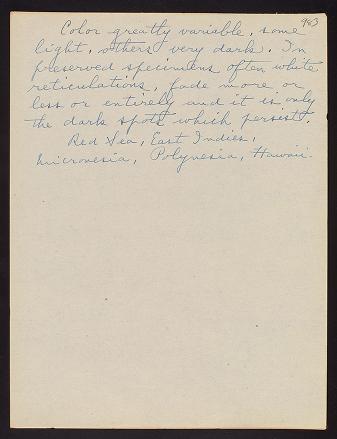 983
Color greatly variable, some
light, others very dark. In
preserved specimens often white
reticulations fade more or
less or entirely and it is only
the dark spots which persist.
Red Sea, East Indies,
Micronesia, Polynesia, Hawaii.